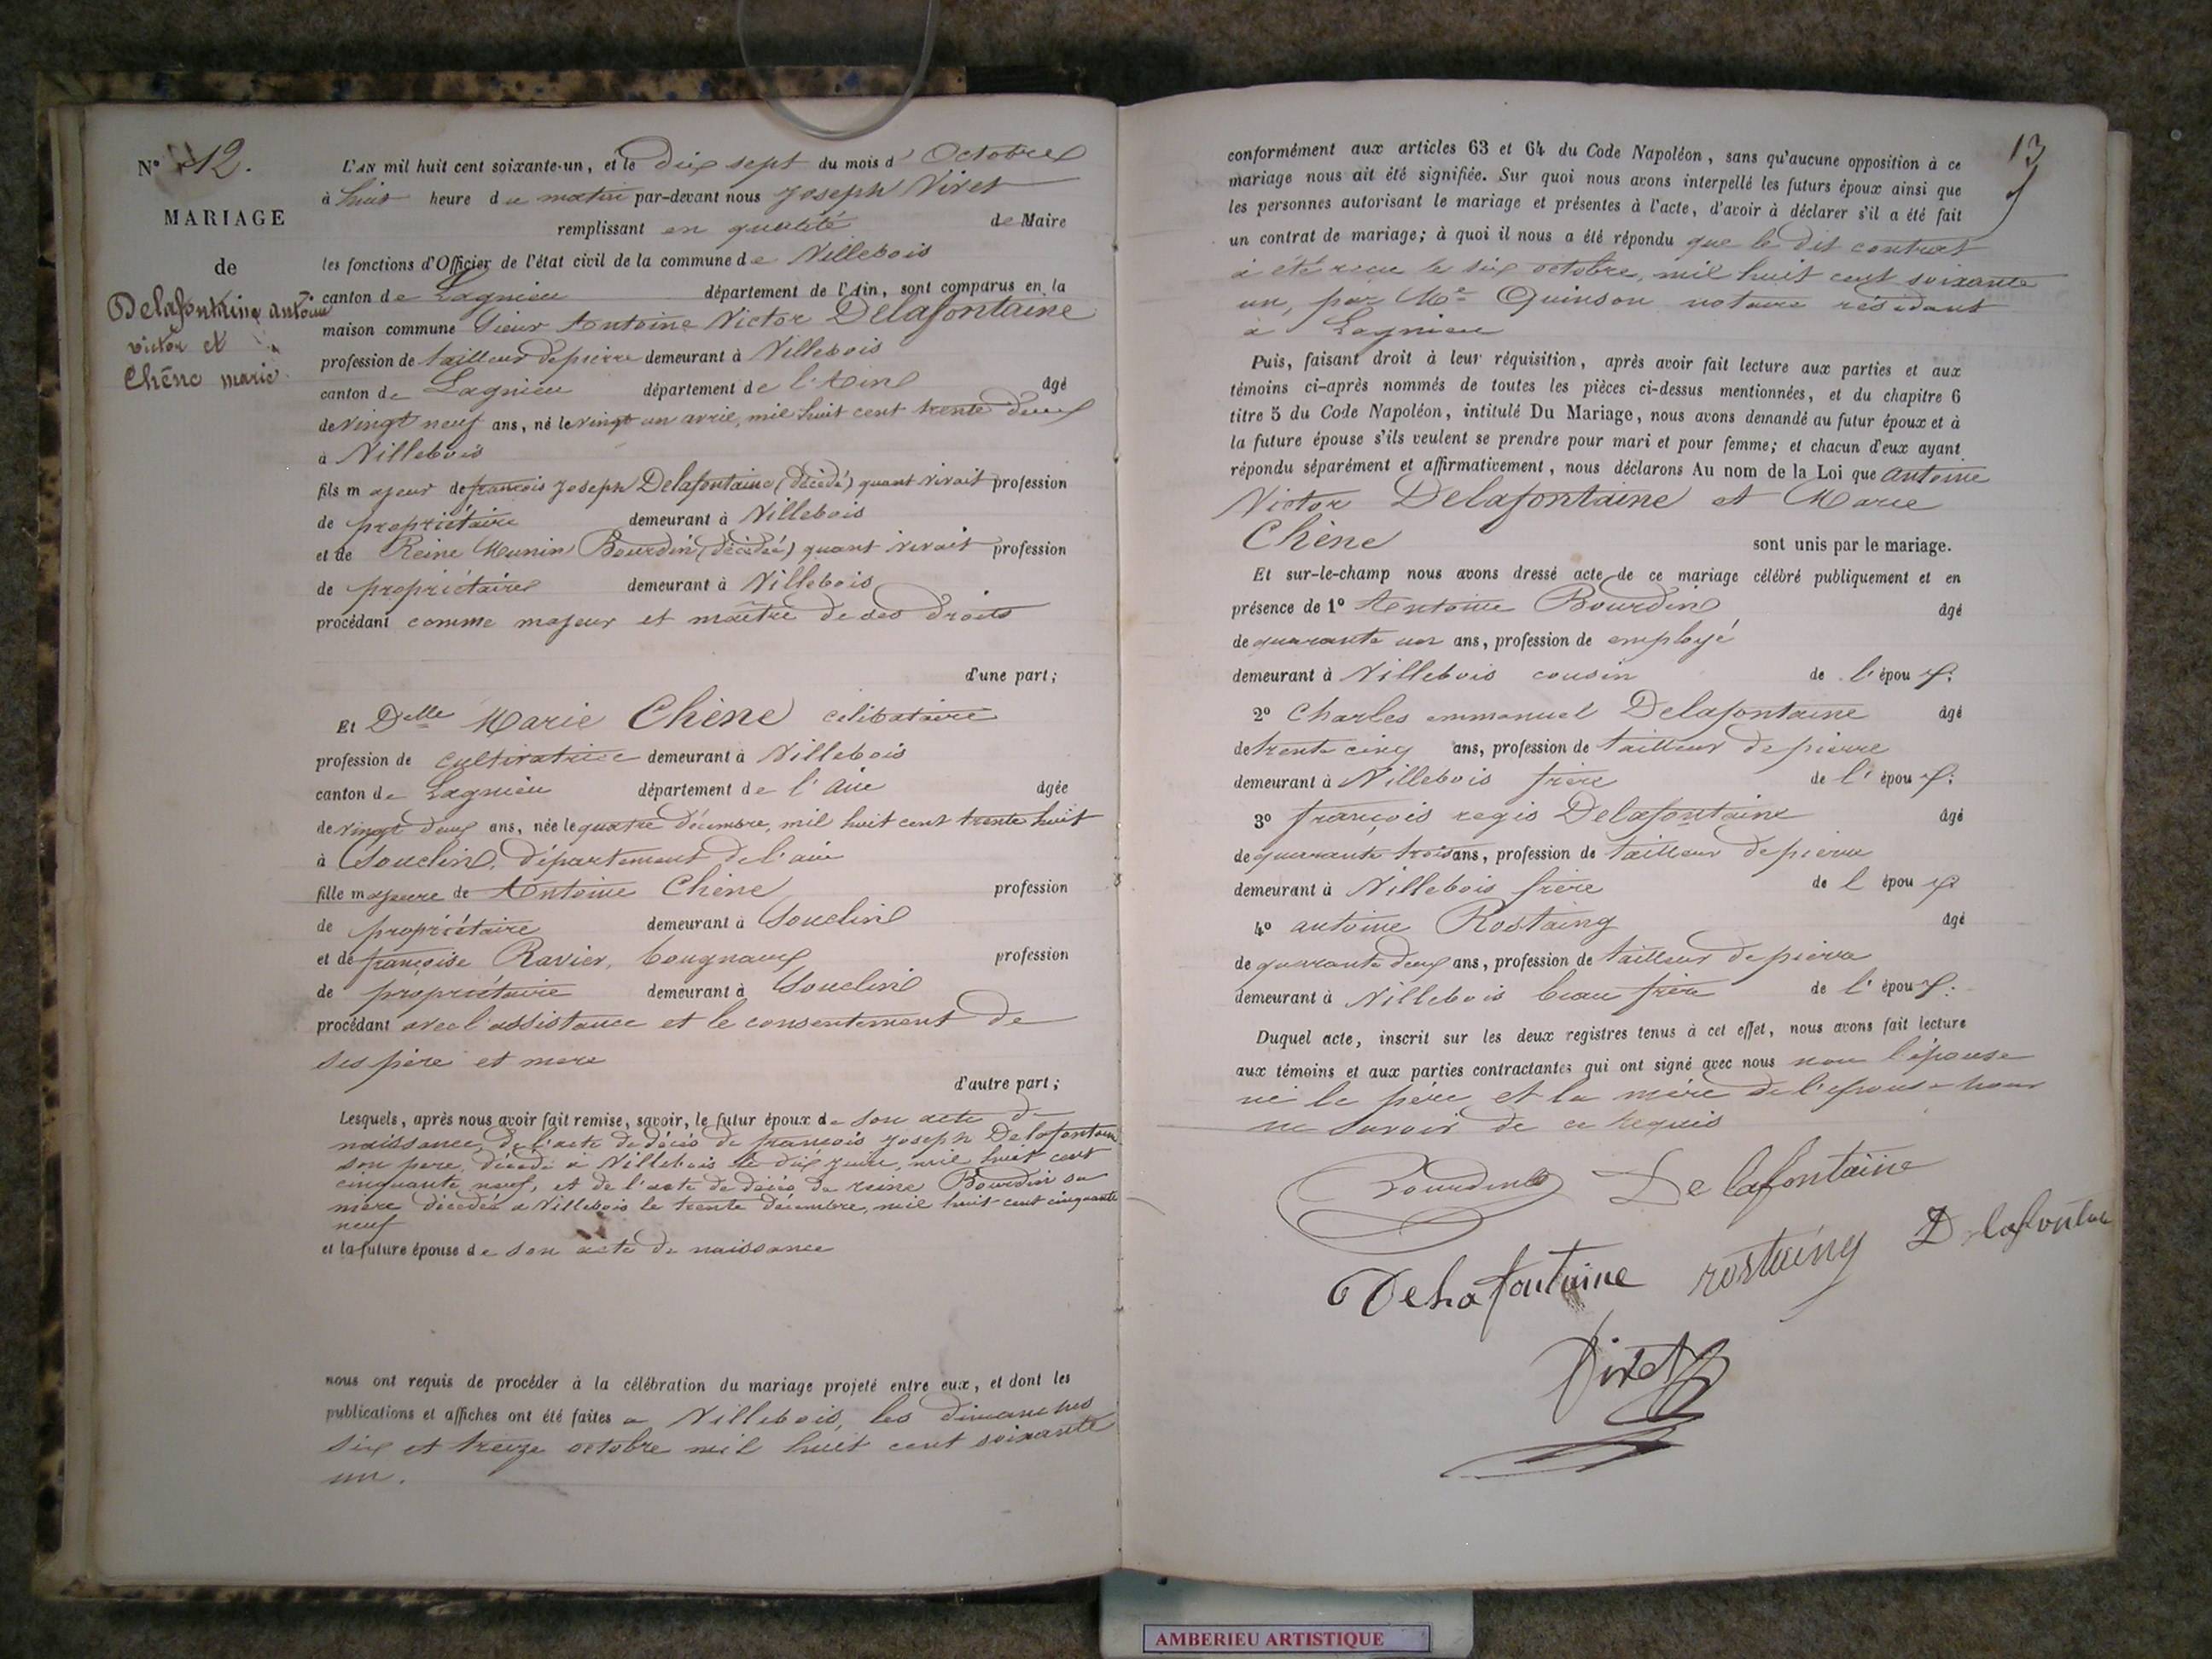 N° 12.
MARIAGE
de
Delafontaine antoine
victor et
Chêne marie
L'AN mil huit cent soixante-un, et le dix sept du mois d'Octobre
à huit heure du matin par-devant nous Joseph Viret
remplissant en qualité de Maire
les fonctions d'Officier de l'état civil de la commune de Villebois
canton de Lagnieu département de l'Ain, sont comparus en la
maison commune Sieur Antoine Victor Delafontaine
profession de tailleur de pierre demeurant à Villebois
canton de Lagnieu département de l'Ain âgé
de vingt neuf ans, né le vingt un avril, mil huit cent trente deux
à Villebois
fils majeur de françois Joseph Delafontaine (décédé) quant vivait profession
de propriétaire demeurant à Villebois
et de Reine Munin Bourdin (décédée) quant vivait profession
de propriétaire demeurant à Villebois
procédant comme majeur et maître de ses droits
d'une part;
Et Delle Marie Chêne célibataire
profession de cultivatrice demeurant à Villebois
canton de Lagnieu département de l'ain âgée
de vingt deux ans, née le quatre décembre, mil huit cent trente huit
à Souclin, département de l'ain
fille majeure de Antoine Chêne profession
de propriétaire demeurant à Souclin
et de françoise Ravier, bougnaux profession
de propriétaire demeurant à Souclin
procédant avec l'assistance et le consentement de
ses père et mere
d'autre part;
Lesquels, après nous avoir fait remise, savoir, le futur époux de son acte de
naissance, de l'acte de décès de françois Joseph Delafontaine
son pere, décédé à Villebois le dix juin, mil huit cent
cinquante neuf, et de l'acte de décès de reine Bourdin sa
mère décédée à Villebois le trente décembre, mil huit cent cinquante
neuf
et la future épouse de son acte de naissance
nous ont requis de procéder à la célébration du mariage projeté entre eux, et dont les
publications et affiches ont été faites a Villebois, les dimanches
six et treize octobre mil huit cent soixante
un.
13
conformément aux articles 63 et 64 du Code Napoléon, sans qu'aucune opposition à ce
mariage nous ait été signifiée. Sur quoi nous avons interpellé les futurs époux ainsi que
les personnes autorisant le mariage et présentes à l'acte, d'avoir à déclarer s'il a été fait
un contrat de mariage; à quoi il nous a été répondu que le dit contrat
a été reçu le six octobre, mil huit cent soixante
un, par Me Quinson notaire résidant
a Lagnieu
Puis, faisant droit à leur réquisition, après avoir fait lecture aux parties et aux
témoins ci-après nommés de toutes les pièces ci-dessus mentionnées, et du chapitre 6
titre 5 du Code Napoléon, intitulé Du Mariage, nous avons demandé au futur époux et à
la future épouse s'ils veulent se prendre pour mari et pour femme; et chacun d'eux ayant
répondu séparément et affirmativement, nous déclarons Au nom de la Loi que antoine
Victor Delafontaine et Marie
Chêne sont unis par le mariage.
Et sur-le-champ nous avons dressé acte de ce mariage célébré publiquement et en
présence de 1° Antoine Bourdin âgé
de quarante un ans, profession de employé
demeurant à Villebois cousin de l'époux;
2° Charles emmanuel Delafontaine âgé
de trente cinq ans, profession de tailleur de pierre
demeurant à Villebois frère de l'époux;
3° françois regis Delafontaine âgé
de quarante trois ans, profession de tailleur de pierre
demeurant à Villebois frère de l'époux
4° antoine Rostaing âgé
de quarante deux ans, profession de tailleur de pierre
demeurant à Villebois beau frère de l'époux.
Duquel acte, inscrit sur les deux registres tenus à cet effet, nous avons fait lecture
aux témoins et aux parties contractantes qui ont signé avec nous non l'épouse
ni le père et la mère de l'épouse pour
ne savoir de ce requis
Bourdin Delafontaine
Delafontaine rostaing Delafontaine
Viret
AMBERIEU ARTISTIQUE